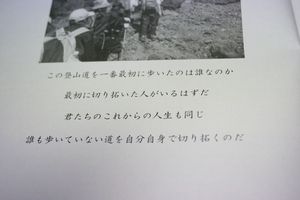 この登山道を一番最初に歩いたのは誰なのか
最初に切り拓いた人がいるはずだ
君たちのこれからの人生も同じ
誰も歩いていない道を自分自身で切り拓くのだ